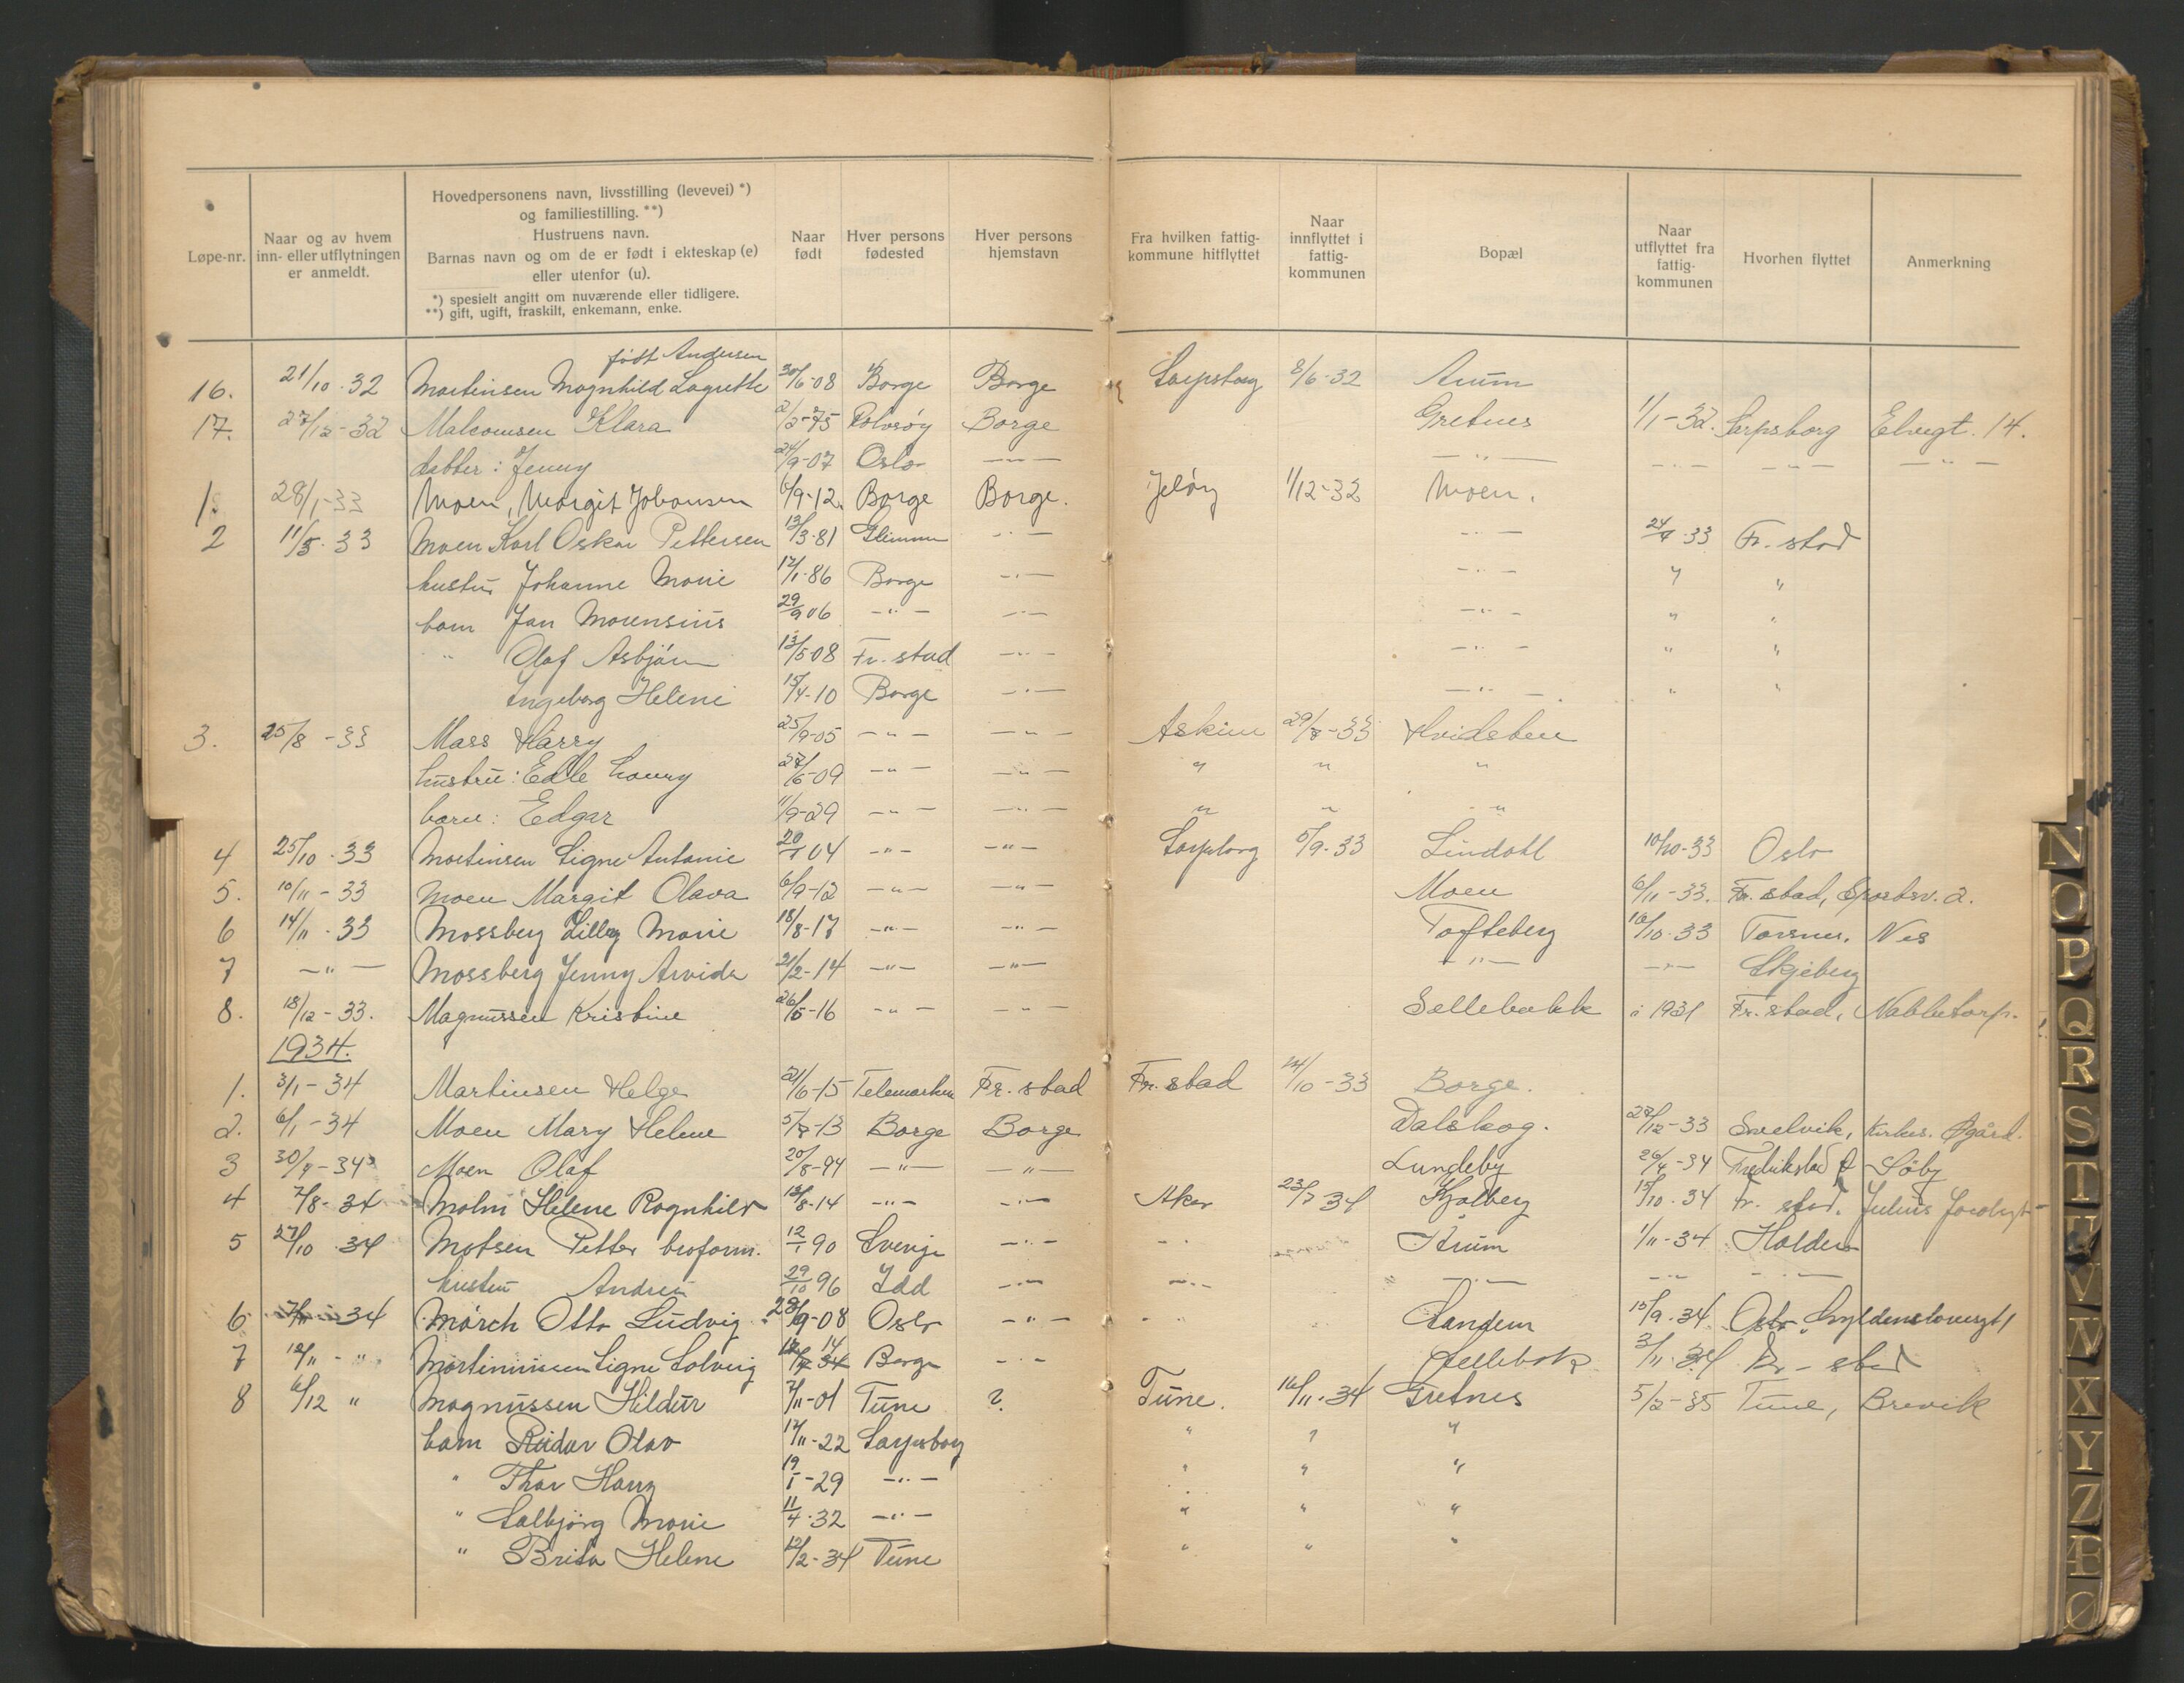 Løpe-nr.
Naar og av hvem inn- eller utflytningen er anmeldt.
Hovedpersonens navn, livsstilling (levevei) *) og familiestilling. **) Hustruens navn. Barnas navn og om de er født i ekteskap (e) eller utenfor (u).
*) spesielt angitt om nuværende eller tidligere.
**) gift, ugift, fraskilt, enkemann, enke.
Naar født
Hver persons fødested
Hver persons hjemstavn
Fra hvilken fattigkommune hitflyttet
Naar innflyttet i fattigkommunen
Bopæl
Naar utflyttet fra fattigkommunen
Hvorhen flyttet
Anmerkning
født Andersen
16. 21/10-32 Martinsen Magnhild Lagrette 30/6-08 Borge Borge Sarpsborg 8/6-32 Årum
17. 27/12-32 Malcomsen Klara 2/2-75 Rolvsøy Borge Gretnes 1/1-32. Sarpsborg Elvegt. 14.
datter: Jenny 24/9-07 Oslo —"— —"— —"— —"— —"—
1. 28/1-33 Moen, Margit Johansen 6/9-12. Borge Borge. Jeløy 1/12-32 Moen.
2 11/5-33 Moen Karl Oskar Pettersen 13/3-81 Glimmen —"— —"— 24/4-33 Fr. stad
hustru Johanne Marie 12/1-86 Borge —"— —"— " "
barn Jan Morensius 29/9 06 —"— —"— —"— " "
" Olaf Asbjörn 13/5 08 Fr. stad —"— —"— " "
Ingeborg Helene 15/4-10 Borge —"— —"— " "
3. 25/8-33 Mass Harry 25/9-05 —"— —"— Askim 29/7-33 Hvidsten
hustru: Edle Loury 27/6-09 —"— —"— " " "
barn: Edgar 11/9-29 —"— —"— " " "
4 25/10-33 Martinsen Signe Antonie 20/1 04 —"— —"— Sarpsborg 5/9-33 Lindahl 10/10-33 Oslo
5. 10/11-33 Moen Margit Olava 6/9-12 —"— —"— Moen 6/11-33. Fr. stad, Sportsv. 2.
6 14/11-33 Mossberg Lilly Marie 18/8-17 —"— —"— Tofteberg 16/10-33 Torsnes, Nes
7 —"— Mossberg Jenny Arvida 21/2-14 —"— —"— —"— —"— Skjeberg
8. 18/12-33. Magnussen Kristine 26/5-16 —"— —"— Sellebakk i 1931 Fr. stad, Nabbetorp.
1934.
1. 3/1-34 Martinsen Helge 21/6-15 Telemarken Fr. stad Fr. stad 14/10-33 Borge.
2. 6/1-34 Moen Mary Helene 5/7-13 Borge Borge Dalskog. 27/12-33 Svelvik, Kirkes. Øgård.
3 30/4-34 Moen Olaf 20/8-94 —"— —"— Lundeby 26/4-34 Fredrikstad Söby
4 7/8-34 Malm Helene Ragnhild 13/8-14 —"— —"— Aker 23/7 34 Kjølberg 15/10-34 Fr. stad. Julius
5 27/10 34 Motsen Petter broform. 12/1 90 Sverige —"— Årum 1/11-34 Halden
hustru Andrea 29/10 96 Idd —"— —"— —"— —"— —"—
6 7/11 34 Mörch Otto Ludvig 28/9-08 Oslo —"— Sandem 15/9-34 Oslo, Gyldensloversgt
7 12/11 - " Martiniussen Signe Solveig 14 Borge —"— Sellebak 3/11-34 Fr-stad
8 6/12 " Magnussen Hildur 7/11-01 Tune ? Tune. 16/11-34 Gretnes 5/2-35 Tune, Brevik
barn Reidar Olav 14/11-22 Sarpsborg " " "
" Thor Harry 19/1-29 —"— " " "
" Solbjørg Marie 11/4-32 —"— " " "
" Brita Helene 12/2-34 Tune " " "
N
O
P
Q
R
S
T
U
V
W
X
Y
Z
Æ
Ø